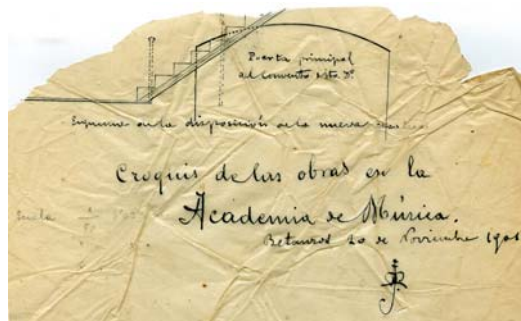 Puerta principal
del Convento Sto. Dº.
Esquema de la disposición de la nueva escalera
Croquis de las obras en la
Academia de Música.
Escala
Betanzos 20 de Noviembre 1901